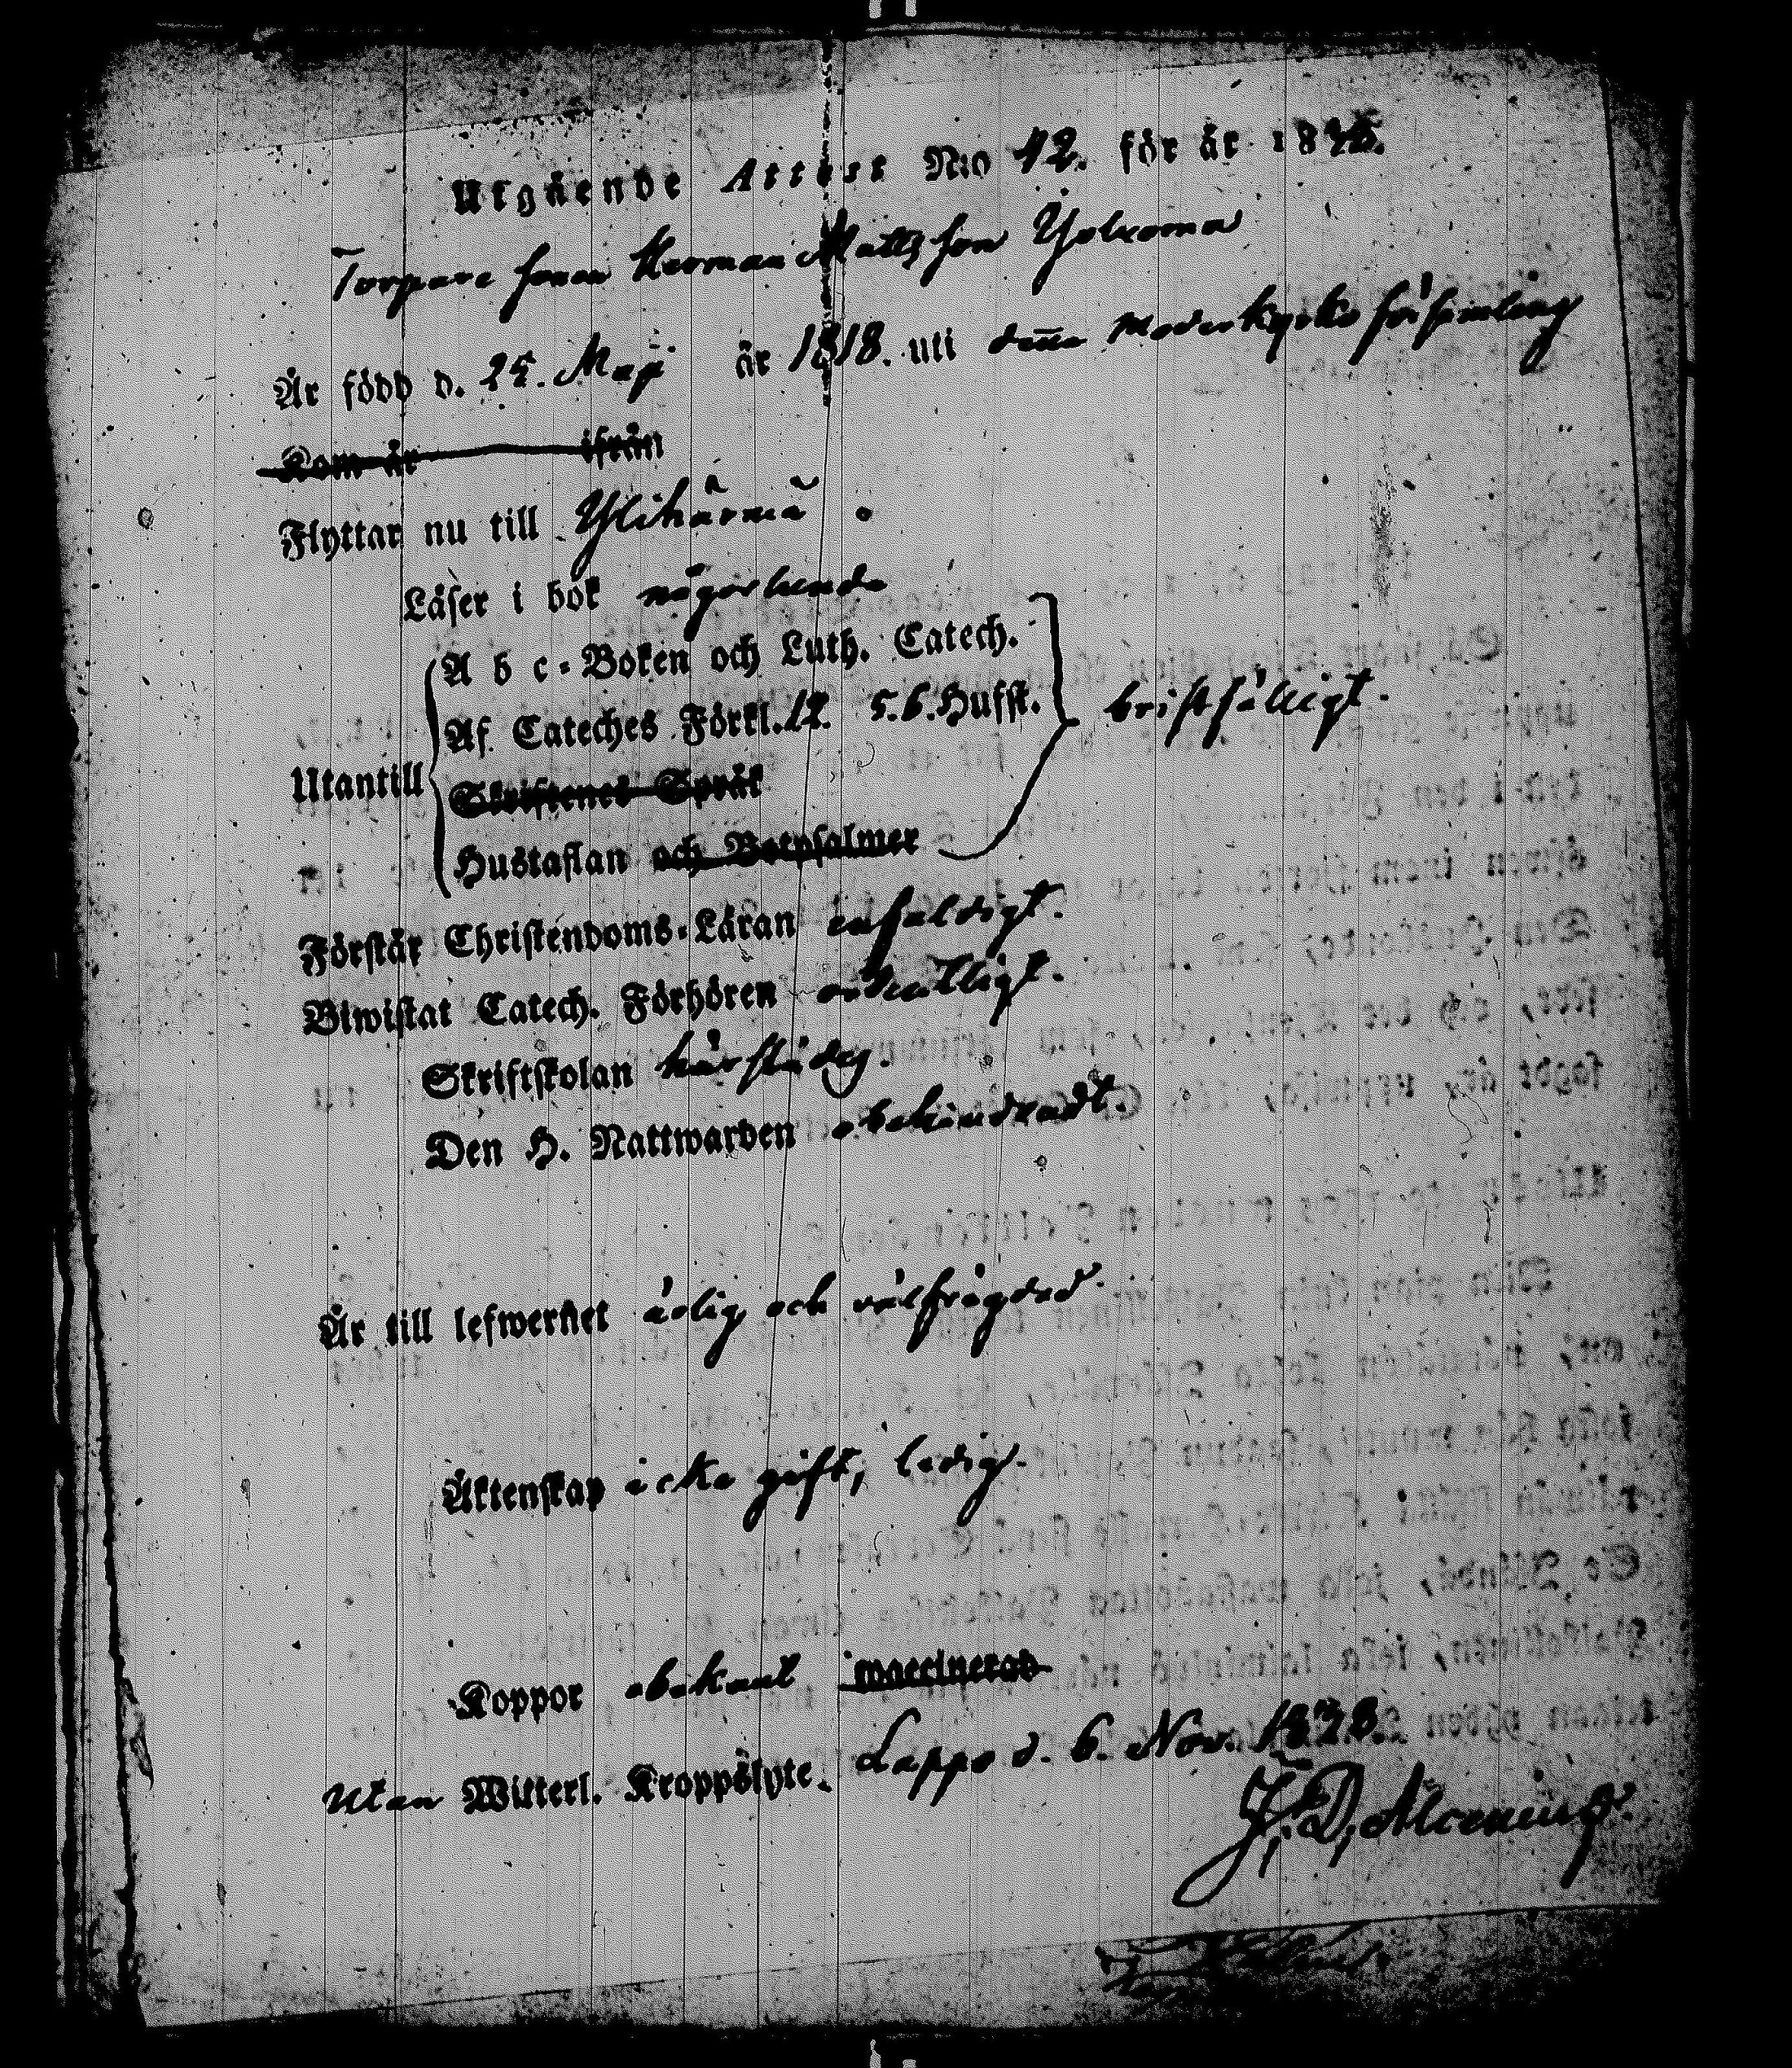 Utgående Attest N:o 42. för år 1838.
Torpare sonen Herman Mattsson
Är född d. 25. Maji år 1818. uti denna Moderkyrko församling
Kom år ifrån
Flyttar nu till Ylihärmä.
Läser i bok någorlunda
A b c-Boken och Luth. Catech.
Af Cateches Förkl. 12. 5. 6. Hufst. bristfälligt.
Utantill
Skriftenes Språk
Hustaflan och Botpsalmer
Förstår Christendoms-Läran enfaldigt.
Biwistat Catech. Förhören ordentligt.
Skriftskolan härstädes.
Den H. Nattwarden obehindradt.
Är till lefwernet ärlig och välfrägdad
Äktenskap icke gift, ledig.
Koppor obekant waccinerad
Utan Witterl. Kroppslyte. Lappo d. 6. Nov. 1838.
J. D. Alcenius.